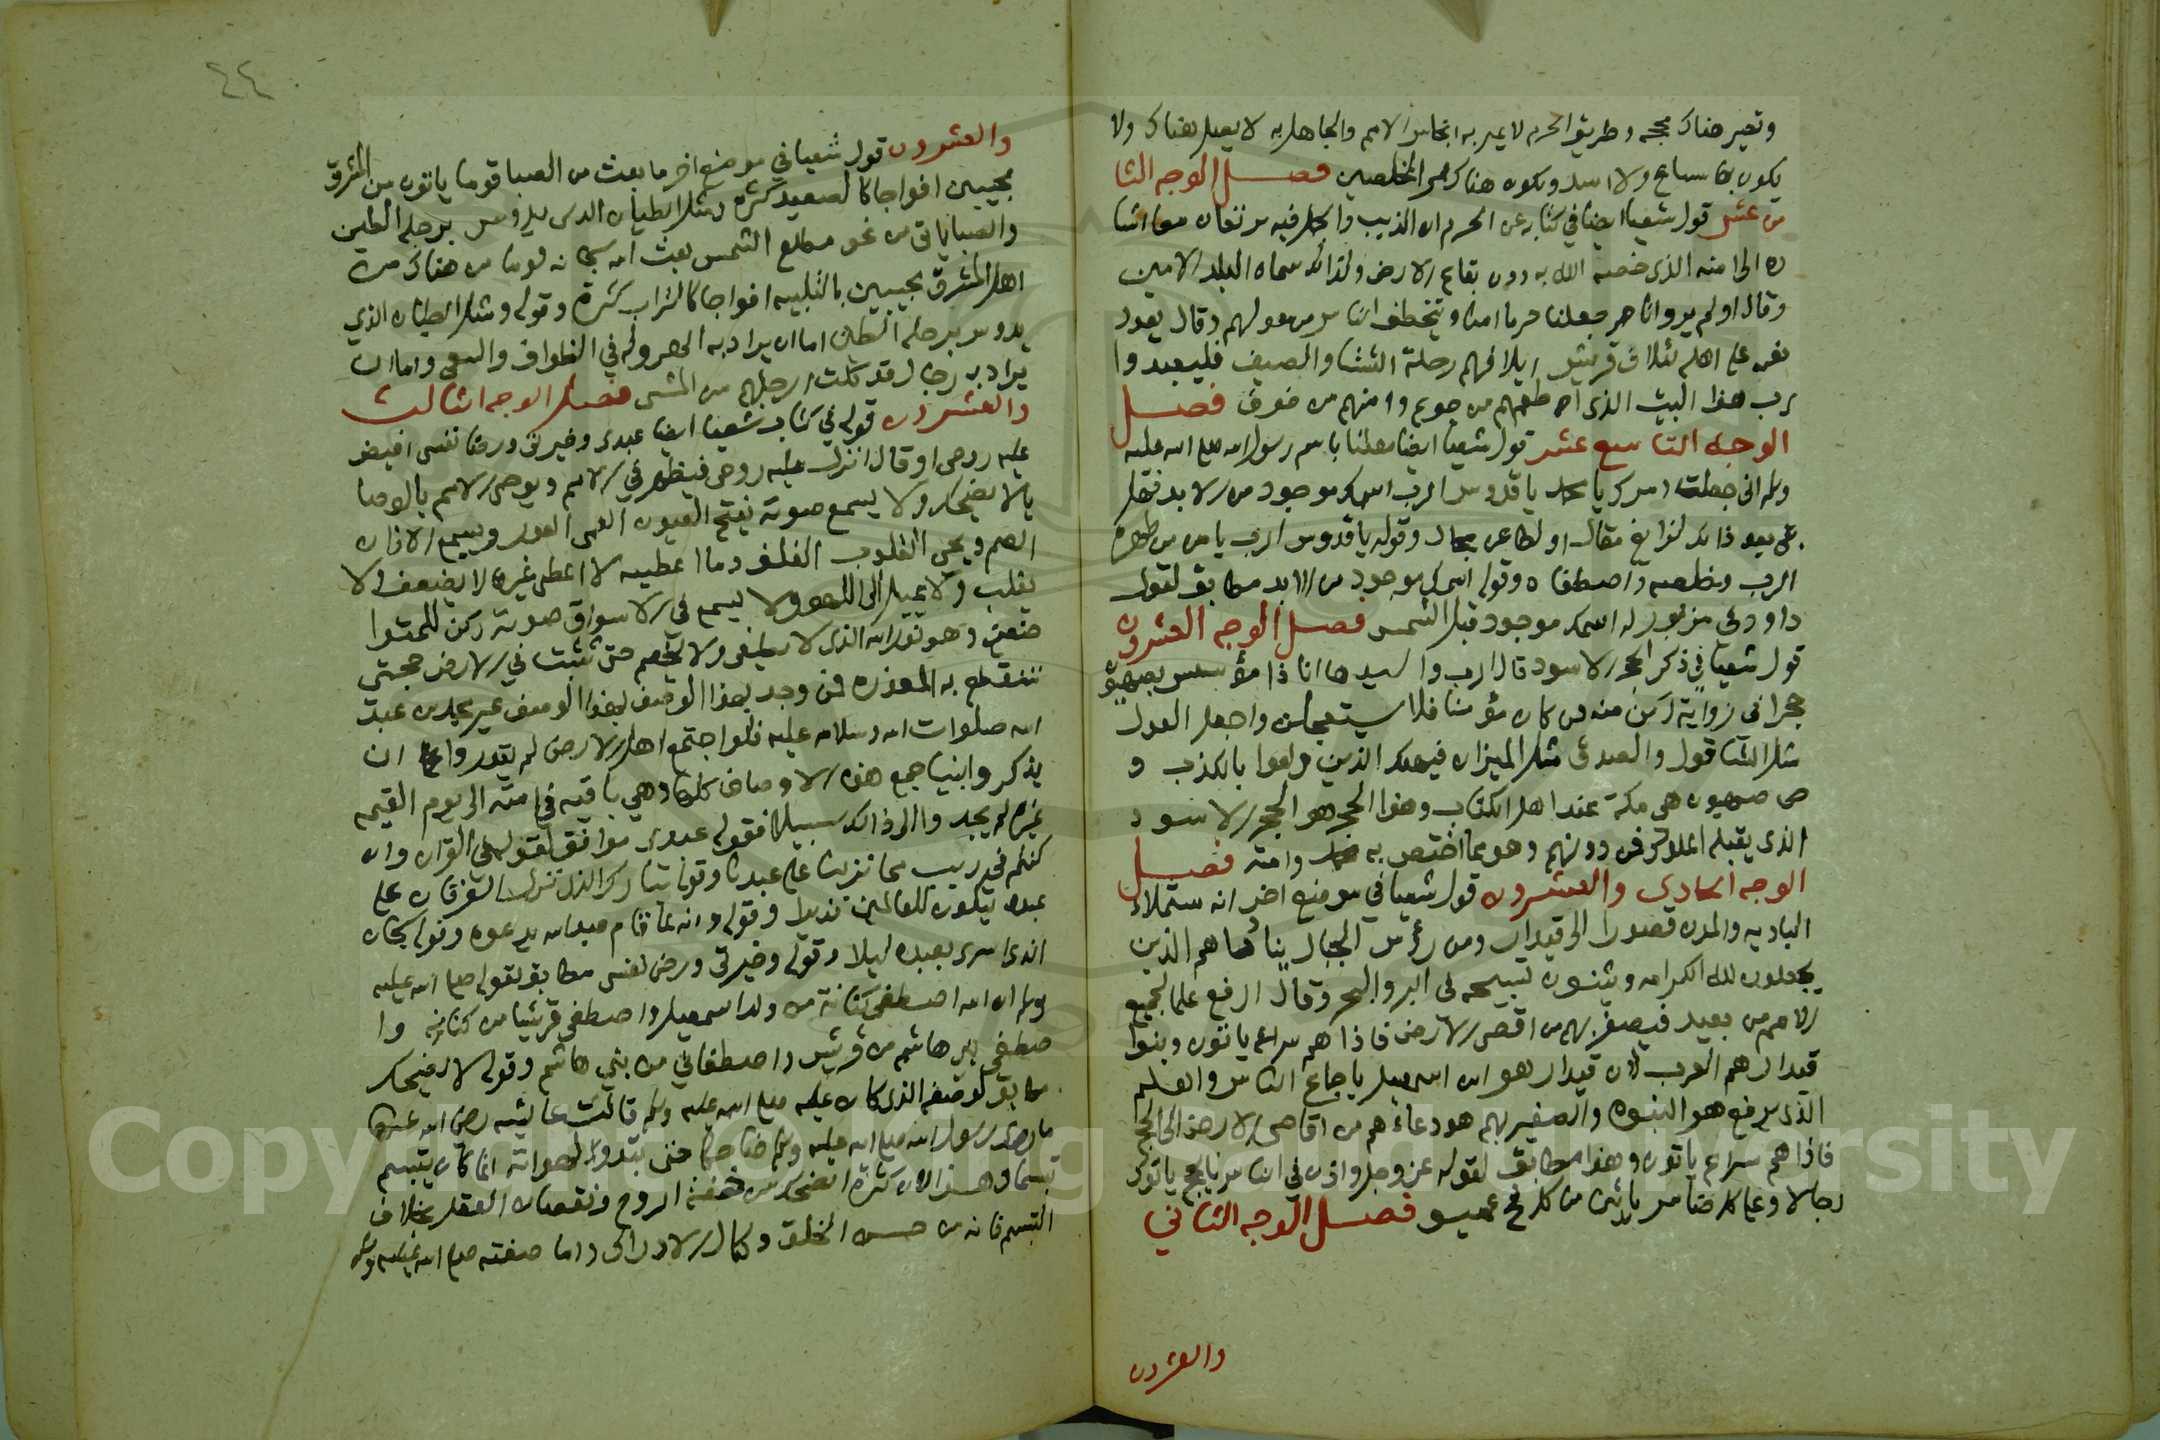 وتصير هناك محجه وطريق الحرم لا يمر به انجاس الامم والجاهل به لا يصل هناك ولا
يكون بها سباع ولا اسد ويكون هناك ممر المخلصين فصل الوجه الثا
من عشر قول شعيا ايضا في كتابه عن الحرم ان الذيب والحمل فيه يرتعان معا اشا
ره الى امنه الذى خصه الله به دون بقاع الارض ولذالك سماه البلد الامين
وقال اولم يروا انا جعلنا حرما امنا ويتخطف الناس من حولهم وقال يعدد
نعمه على اهله لئلاف قريش ايلافهم رحلة الشتا والصيف فليعبدوا
رب هذا البيت الذى اطعمهم من جوع وامنهم من خوف فصل
الوجه التاسع عشر قول شعيا ايضا معلنا باسم رسول الله صلى الله عليه
وسلم انى جعلت امرك يا محمد يا قدوس الرب اسمك موجود من الابد فهل
بقى بعد ذالك لزايغ مقال او لطاعن مجال وقوله يا قدوس الرب يا من طهره
الرب وخلصه واصطفاه وقوله اسمك موجود من الابد مطابق لقول
داوود فى مزبور له اسمك موجود قبل الشمس فصل الوجه العشرون
قول شعيا في ذكر الحجر الاسود قال الرب والسيد ها انا ذا مؤسس بصهيون
حجرا فى زواية ركن منه فمن كان مؤمنا فلا يستعجلن واجعل العدل
مثل الشاقول والصدق مثل الميزان فيهلك الذين ولعوا بالكذب و
ص صهيون هى مكة عند اهل الكتاب وهذا الحجر هو الحجر الاسود
الذى يقبله الملوك فمن دونهم وهو مما اختص به محمد وامته فصل
الوجه الحادي والعشرون قول شعيا في موضع اخر انه ستملاء
الباديه والمدن قصورا الى قيدار ومن رؤس الجبال ينادوا هم الذين
يجعلون لله الكرامه ويثنون تسبيحه فى البر والبحر وقال ارفع علما لجميع
الامم من بعيد فيصفر بهم من اقصى الارض فاذا هم سراع ياتون وبنوا
قيدار هم العرب لان قيدار هو ابن اسمعيل باجماع الناس والعلم
الذى يرفع هو النبوه والصفير بهم هو دعاءهم من اقاصى الارض الى الحج
فاذا هم سراع ياتون وهذا مطابق لقوله عز وجل واذن فى الناس بالحج ياتوك
رجالا وعلى كل ضامر ياتين من كل فج عميق فصل الوجه الثاني
والعشرون
٤٤
والعشرون قول شعيا في موضع اخر ما بعث من الصبا قوما ياتون من المشرق
مجيبين افواجا كالصعيد كثرة ومثل الطيان الذى يدوس برجله الطين
والصبا ياتى من نحو مطلع الشمس بعث الله سبحانه قوما من هناك من
اهل المشرق مجيبين بالتلبيه افواجا كالتراب كثرة وقوله ومثل الطيان الذي
يدوس برجله الطين اما ان يراد به الهروله في الطواف والسعى واما ان
يراد به رجال قد كلت ارجلهم من المشى فصل الوجه الثالث
والعشرون قوله في كتاب شعيا ايضا عبدى وخيرتى ورضا نفسى افيض
عليه روحى او قال انزل عليه روحى فيظهر في الامم ويوصى الامم بالوصا
يا لا يضحك ولا يسمع صوته يفتح العيون العمى العور ويسمع الاذان
الصم ويحى القلوب الغلف وما اعطيه لا اعطى غيره لا يضعف ولا
يغلب ولا يميل الى اللهو ولا يسمع فى الاسواق صوته ركن للمتوا
ضعين وهو نور الله الذى لا يطفى ولا يخصم حتى تثبت فى الارض حجتى
وينقطع به المعذره فمن وجد بهذا الوصف لهذا الوصف غير محمد بن عبد
الله صلوات الله وسلامه عليه فلو اجتمع اهل الارض لم يقدروا ان
يذكروا نبيا جمع هذه الاوصاف كلها وهى باقيه في امته الى يوم القيمه
غيره لم يجدوا الى ذالك سبيلا فقوله عبدى موافق لقوله في القران وان
كنتم في ريب مما نزلنا على عبدنا وقوله تبارك الذى نزل الفرقان على
عبده ليكون للعالمين نذيرا وقوله وانه لما قام عبد الله يدعوه وقوله سبحان
الذى اسرى بعبده ليلا وقوله وخيرتى ورضى نفسى مطابق لقوله صلى الله عليه
وسلم ان الله اصطفى كنانة من ولد اسمعيل واصطفى قريشا من كنانه وا
صطفى بنى هاشم من قريش واصطفاني من بني هاشم وقوله لا يضحك
مطابق لوصفه الذى كان عليه صلى الله عليه وسلم قالت عايشه رضى الله عنها
ما رايت رسول الله صلى الله عليه وسلم ضاحكا حتى تبدوا لهواته انما كان يتبسم
تبسما وهذا لان كثرة الضحك من خفة الروح ونقصان العقل بخلاف
التبسم فانه من حسن الخلق وكمال الادراك واما صفته صلى الله عليه وسلم